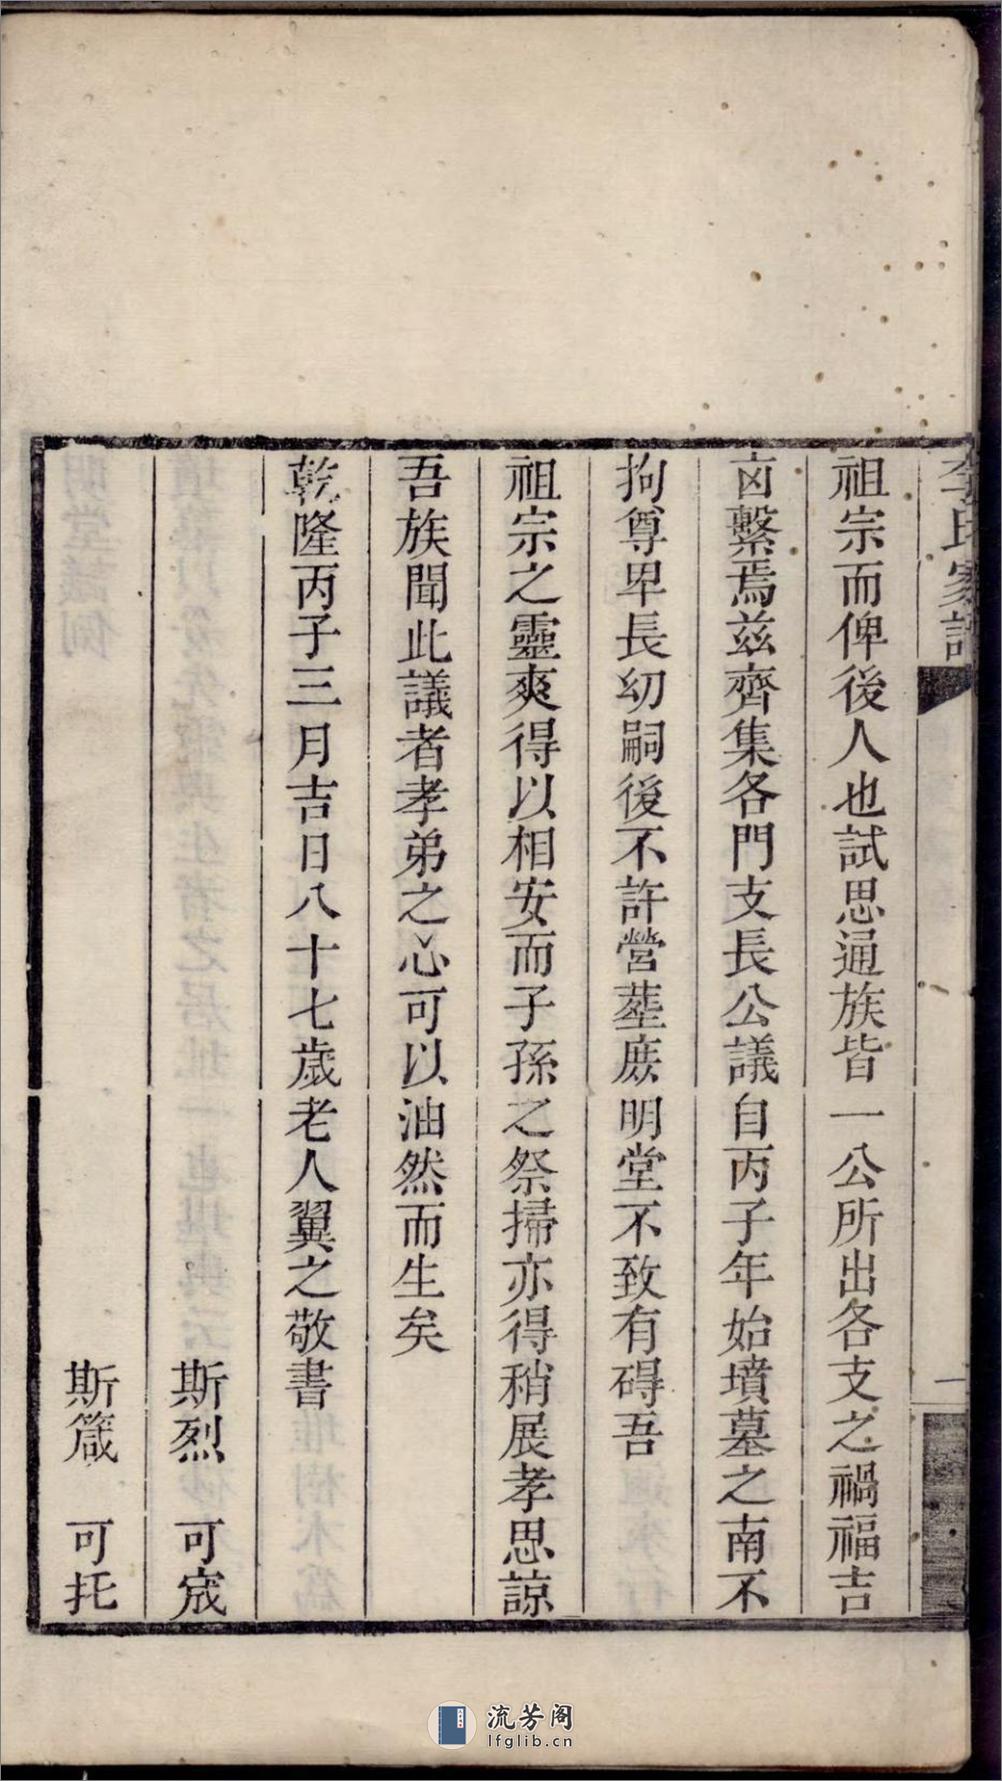 李氏家譜
一
祖宗而俾後人也試思通族皆一公所出各支之禍福吉
凶繫焉兹齊集各門支長公議自丙子年始墳墓之南不
拘尊卑長幼嗣後不許營塟庶明堂不致有碍吾
祖宗之靈爽得以相安而子孫之祭掃亦得稍展孝思諒
吾族聞此議者孝弟之心可以油然而生矣
乾隆丙子三月吉日八十七歲老人翼之敬書
斯烈 可宬
斯箴 可托
流芳阁
lfglib.cn